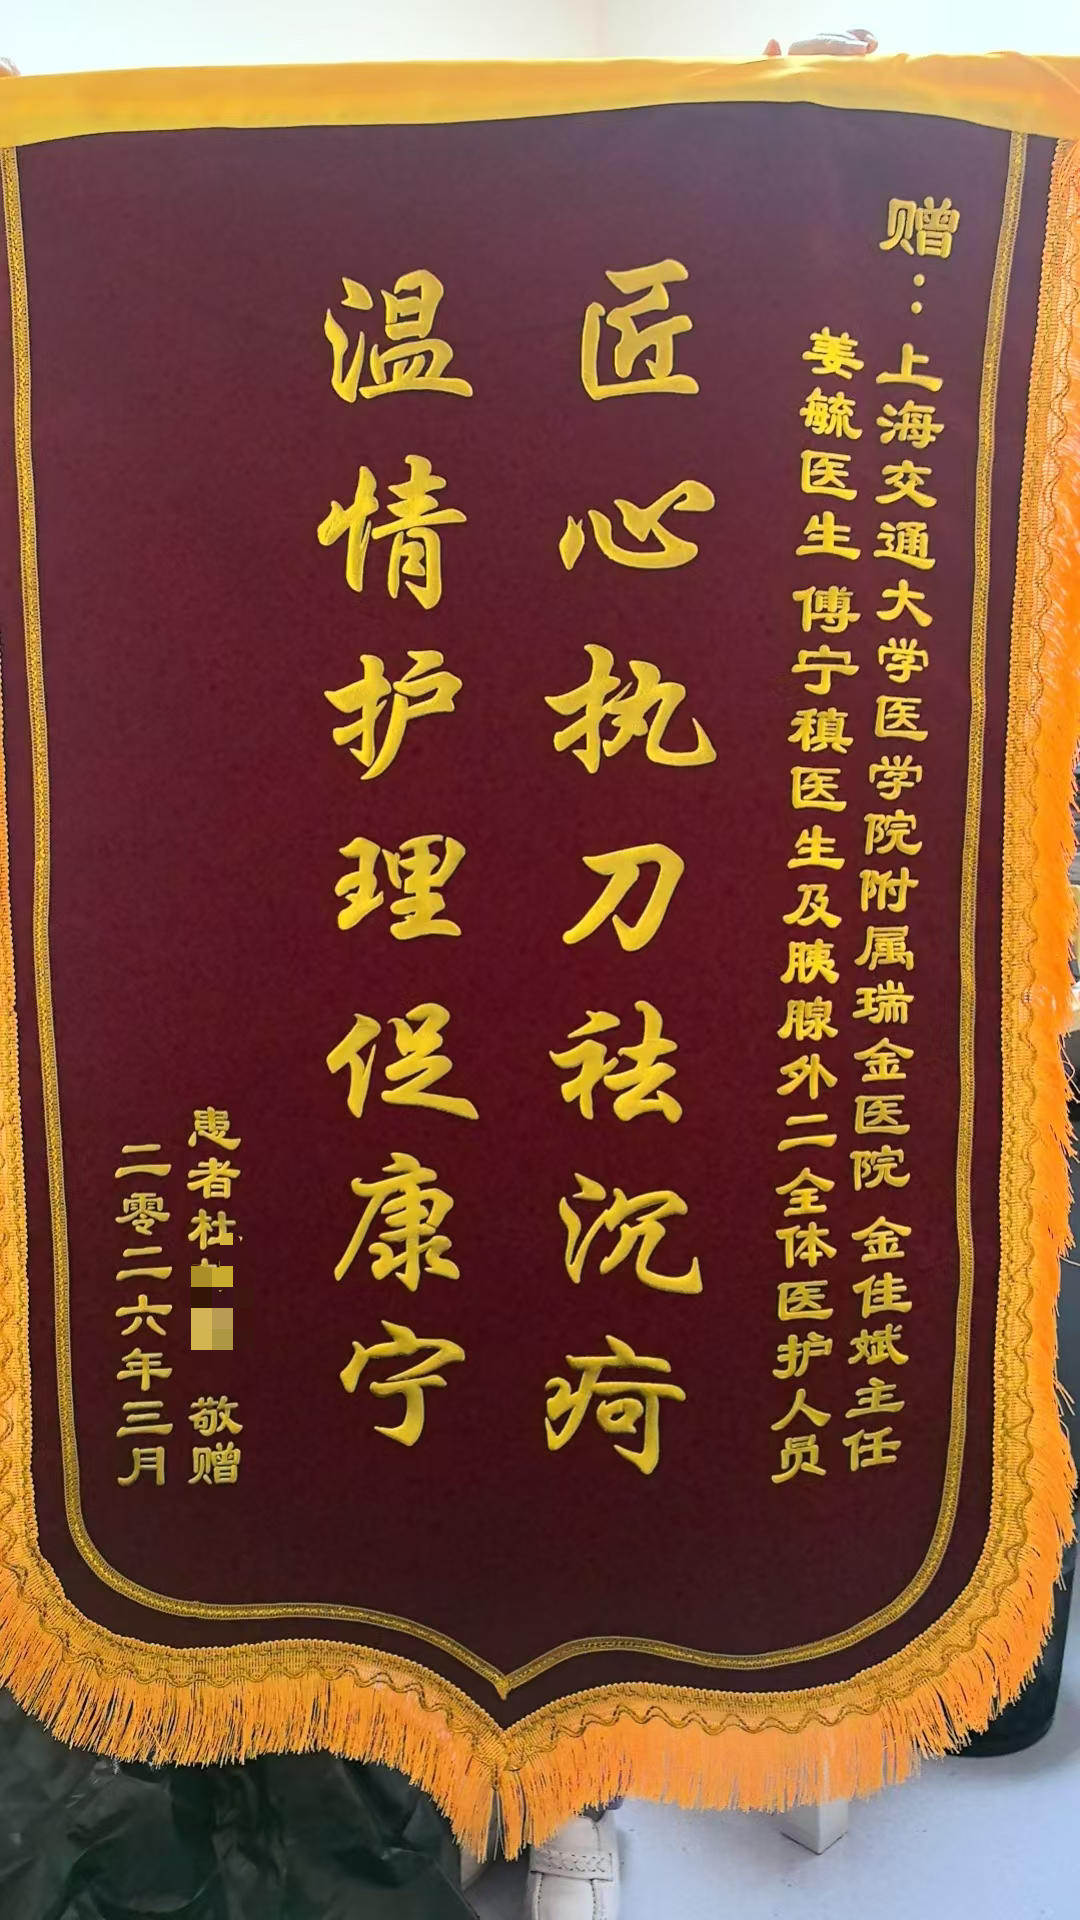 赠：上海交通大学医学院附属瑞金医院 金佳斌主任
姜毓医生 傅宁稹医生及胰腺外二全体医护人员
匠心执刀祛沉疴
温情护理促康宁
患者杜 敬赠
二零二六年三月